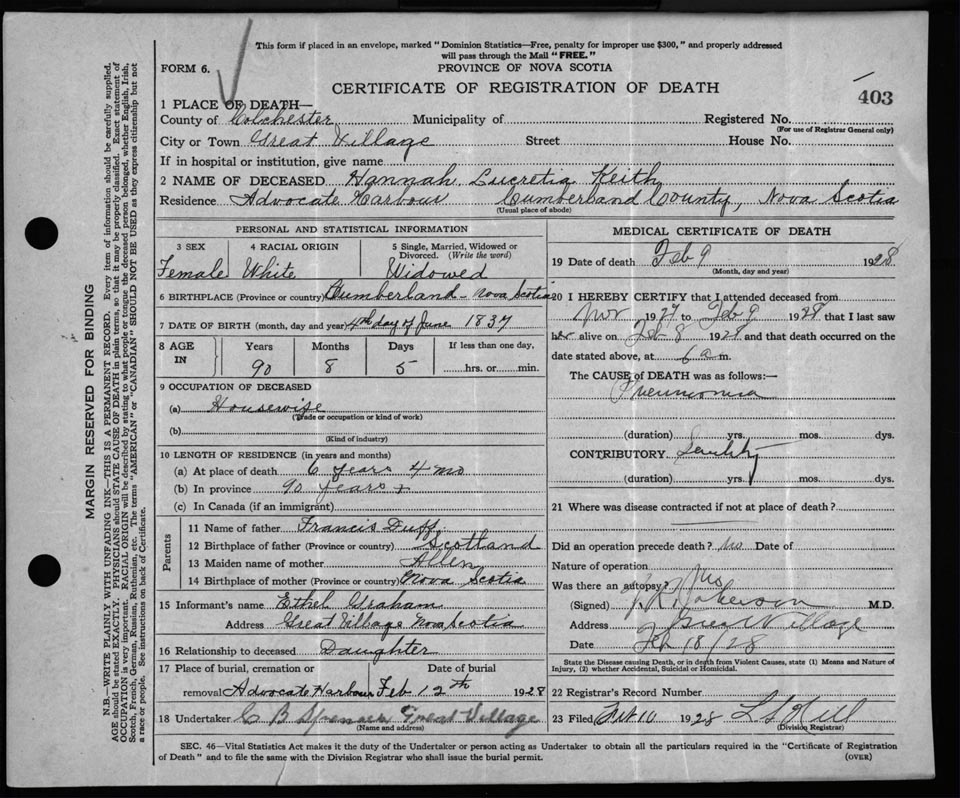 This form if placed in an envelope, marked "Dominion Statistics—Free, penalty for improper use $300," and properly addressed
will pass through the Mail "FREE."
FORM 6.
PROVINCE OF NOVA SCOTIA
CERTIFICATE OF REGISTRATION OF DEATH
403
1 PLACE OF DEATH—
County of Colchester Municipality of Registered No.
(For use of Registrar General only)
City or Town Great Village Street House No.
If in hospital or institution, give name
2 NAME OF DECEASED Hannah Lucretia Keith
Residence Advocate Harbour Cumberland County, Nova Scotia
(Usual place of abode)
PERSONAL AND STATISTICAL INFORMATION
3 SEX 4 RACIAL ORIGIN 5 Single, Married, Widowed or
Divorced. (Write the word)
Female White Widowed
6 BIRTHPLACE (Province or country) Cumberland - Nova Scotia
7 DATE OF BIRTH (month, day and year) 4th day of June 1837
8 AGE IN Years Months Days If less than one day,
90 8 5 hrs. or min.
9 OCCUPATION OF DECEASED
(a) Housewife
(Trade or occupation or kind of work)
(b)
(Kind of industry)
10 LENGTH OF RESIDENCE (in years and months)
(a) At place of death 6 years 4 mo
(b) In province 90 years
(c) In Canada (if an immigrant)
Parents
11 Name of father Francis Duff
12 Birthplace of father (Province or country) Scotland
13 Maiden name of mother Allen
14 Birthplace of mother (Province or country) Nova Scotia
15 Informant's name Ethel Graham
Address Great Village Nova Scotia
16 Relationship to deceased Daughter
17 Place of burial, cremation or Date of burial
removal Advocate Harbour Feb 12th 1928
18 Undertaker C B Spencer Great Village
(Name and address)
MEDICAL CERTIFICATE OF DEATH
19 Date of death Feb 9 1928
(Month, day and year)
20 I HEREBY CERTIFY that I attended deceased from
Nov 1927 to Feb 9 1928 that I last saw
her alive on Feb 8 1928 and that death occurred on the
date stated above, at 6 a m.
The CAUSE of DEATH was as follows:—
Pneumonia
(duration) yrs. mos. dys.
CONTRIBUTORY Senility
(duration) yrs. mos. dys.
21 Where was disease contracted if not at place of death?
Did an operation precede death? no Date of
Nature of operation
Was there an autopsy? no
(Signed) M.D.
Address Great Village
Date Feb 18/28
State the Disease causing Death, or in death from Violent Causes, state (1) Means and Nature of
Injury, (2) whether Accidental, Suicidal or Homicidal.
22 Registrar's Record Number
23 Filed Feb 10 1928 L S Hill
(Division Registrar)
SEC. 46—Vital Statistics Act makes it the duty of the Undertaker or person acting as Undertaker to obtain all the particulars required in the "Certificate of Registration
of Death" and to file the same with the Division Registrar who shall issue the burial permit. (OVER)
MARGIN RESERVED FOR BINDING
N.B.—WRITE PLAINLY WITH UNFADING INK—THIS IS A PERMANENT RECORD. Every item of information should be carefully supplied.
AGE should be stated EXACTLY. PHYSICIANS should STATE CAUSE OF DEATH in plain terms, so that it may be properly classified. Exact statement of
OCCUPATION is very important. RACIAL ORIGIN will be described by stating to what people or tongue the deceased person belonged, whether English, Irish,
Scotch, French, German, Russian, Ruthenian, etc. The terms "AMERICAN" or "CANADIAN" SHOULD NOT BE USED as they express citizenship but not
a race or people. See instructions on back of Certificate.